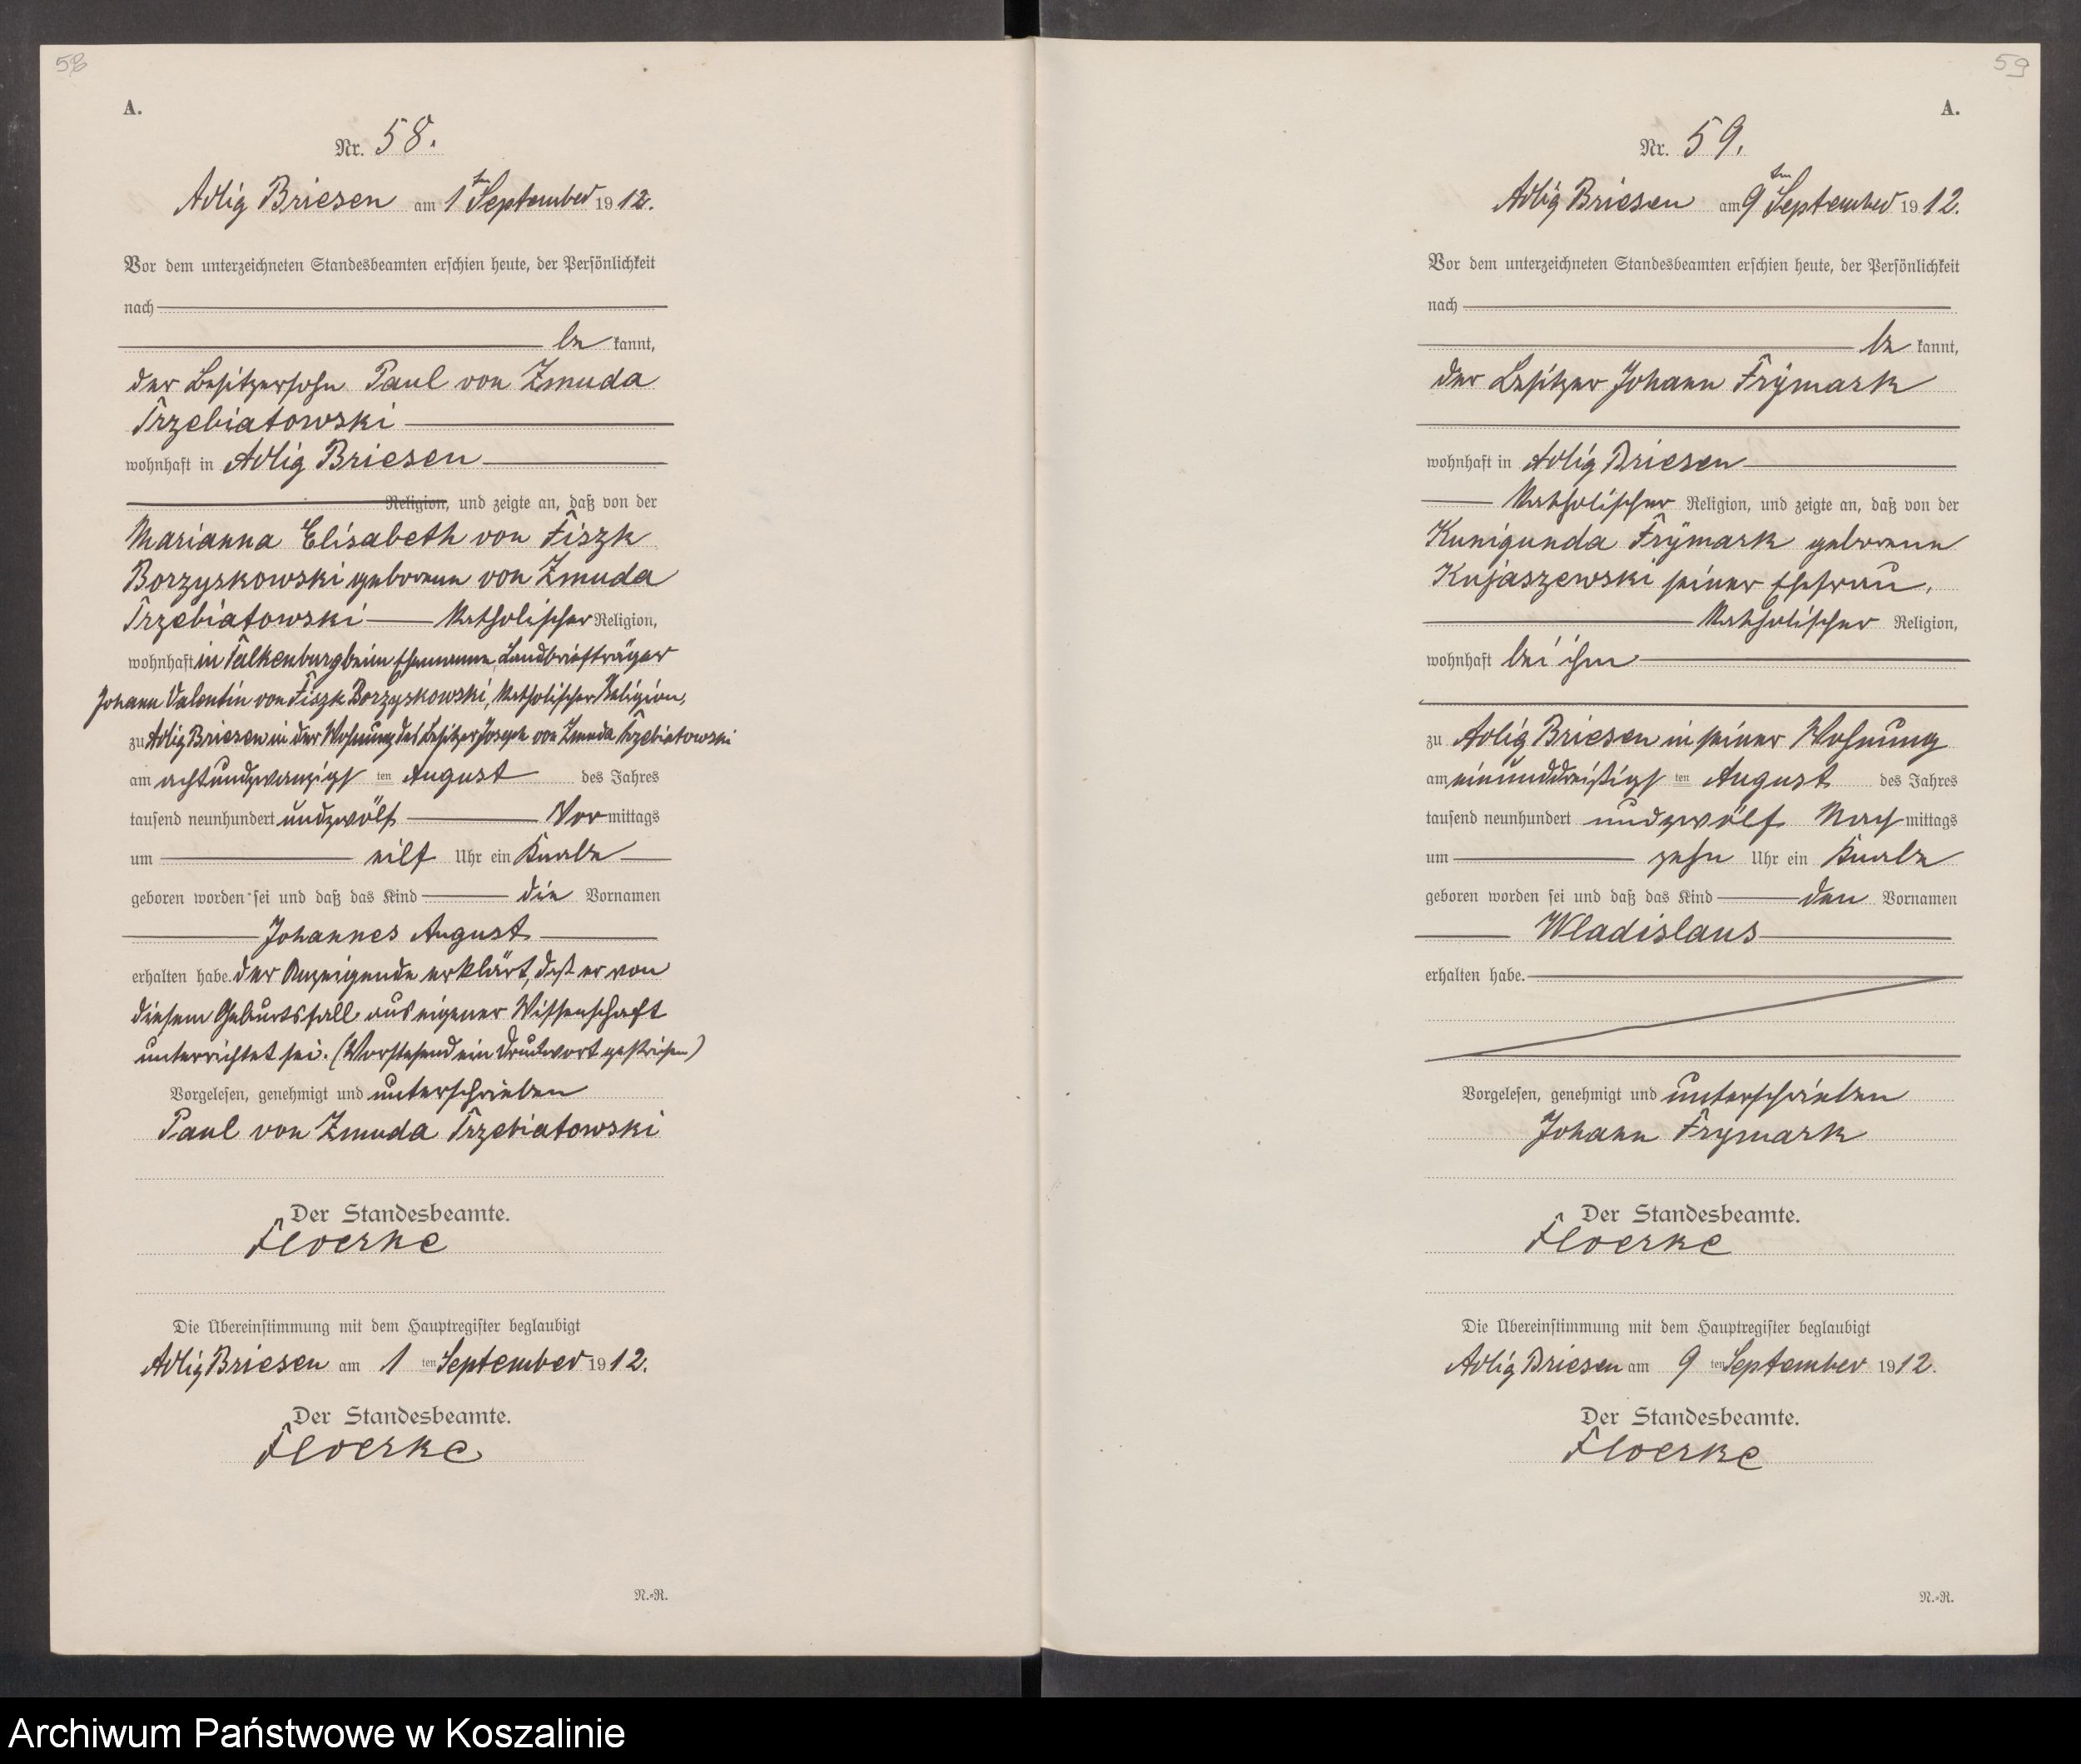 58
A.
Nr. 58.
Adlig Briesen am 1ten September 1912.
Vor dem unterzeichneten Standesbeamten erschien heute, der Persönlichkeit
nach
be kannt,
der Besitzersohn Paul von Zmuda
Trzebiatowski
wohnhaft in Adlig Briesen
Religion, und zeigte an, daß von der
Marianna Elisabeth von Fiszk
Borzyskowski geborene von Zmuda
Trzebiatowski katholischer Religion,
wohnhaft in Falkenburg beim Ehemanne, Landbriefträger
Johann Valentin von Fiszk Borzyskowski, katholischer Religion,
zu Adlig Briesen in der Wohnung des Besitzer Joseph von Zmuda Trzebiatowski
am achtundzwanzigs ten August des Jahres
tausend neunhundert undzwölf Vor mittags
um eilf Uhr ein Knabe
geboren worden sei und daß das Kind die Vornamen
Johannes August
erhalten habe. Der Anzeigende erklärt, daß er von
diesem Geburtsfall aus eigener Wissenschaft
unterrichtet sei. (Vorstehend ein Druckwort gestrichen)
Vorgelesen, genehmigt und unterschrieben
Paul von Zmuda Trzebiatowski
Der Standesbeamte.
Floerke
Die Übereinstimmung mit dem Hauptregister beglaubigt
Adlig Briesen am 1 ten September 1912.
Der Standesbeamte.
Floerke
N.-R.
59
A.
Nr. 59.
Adlig Briesen am 9ten September 1912.
Vor dem unterzeichneten Standesbeamten erschien heute, der Persönlichkeit
nach
be kannt,
der Besitzer Johann Frÿmark
wohnhaft in Adlig Briesen
katholischer Religion, und zeigte an, daß von der
Kunigunda Frÿmark geborene
Kujaszewski seiner Ehefrau,
katholischer Religion,
wohnhaft bei ihm
zu Adlig Briesen in seiner Wohnung
am einunddreißigs ten August des Jahres
tausend neunhundert undzwölf Nach mittags
um zehn Uhr ein Knabe
geboren worden sei und daß das Kind den Vornamen
Wladislaus
erhalten habe.
Vorgelesen, genehmigt und unterschrieben
Johann Frymark
Der Standesbeamte.
Floerke
Die Übereinstimmung mit dem Hauptregister beglaubigt
Adlig Briesen am 9 ten September 1912.
Der Standesbeamte.
Floerke
N.-R.
Archiwum Państwowe w Koszalinie